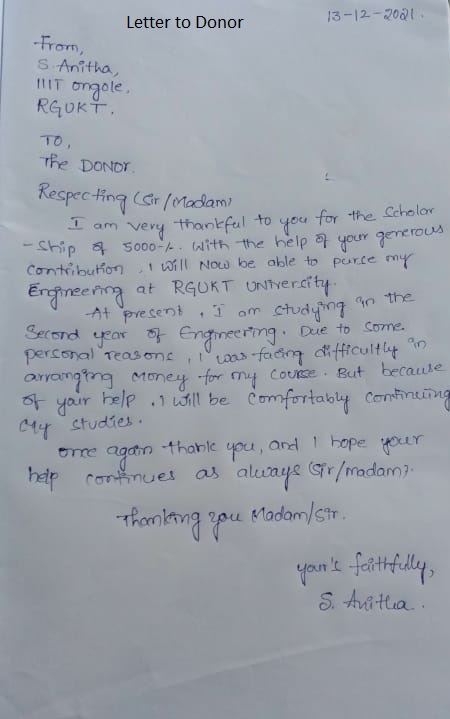 Letter to Donor
13-12-2021.
From,
S. Anitha,
IIIT ongole,
RGUKT.
TO,
The DONOR.
Respecting (Sir/Madam)
I am very thankful to you for the Scholar
-Ship of 5000-/. With the help of your generous
contribution, I will Now be able to purse my
Engineering at RGUKT University.
At present, I am studying in the
Second year of Engineering. Due to some
personal reasons, I was facing difficultly in
arranging money for my course. But because
of your help, I will be comfortably continuing
my studies.
once again thank you, and I hope your
help continues as always (Sir/madam).
Thanking you Madam/Sir.
your's faithfully,
S. Anitha.